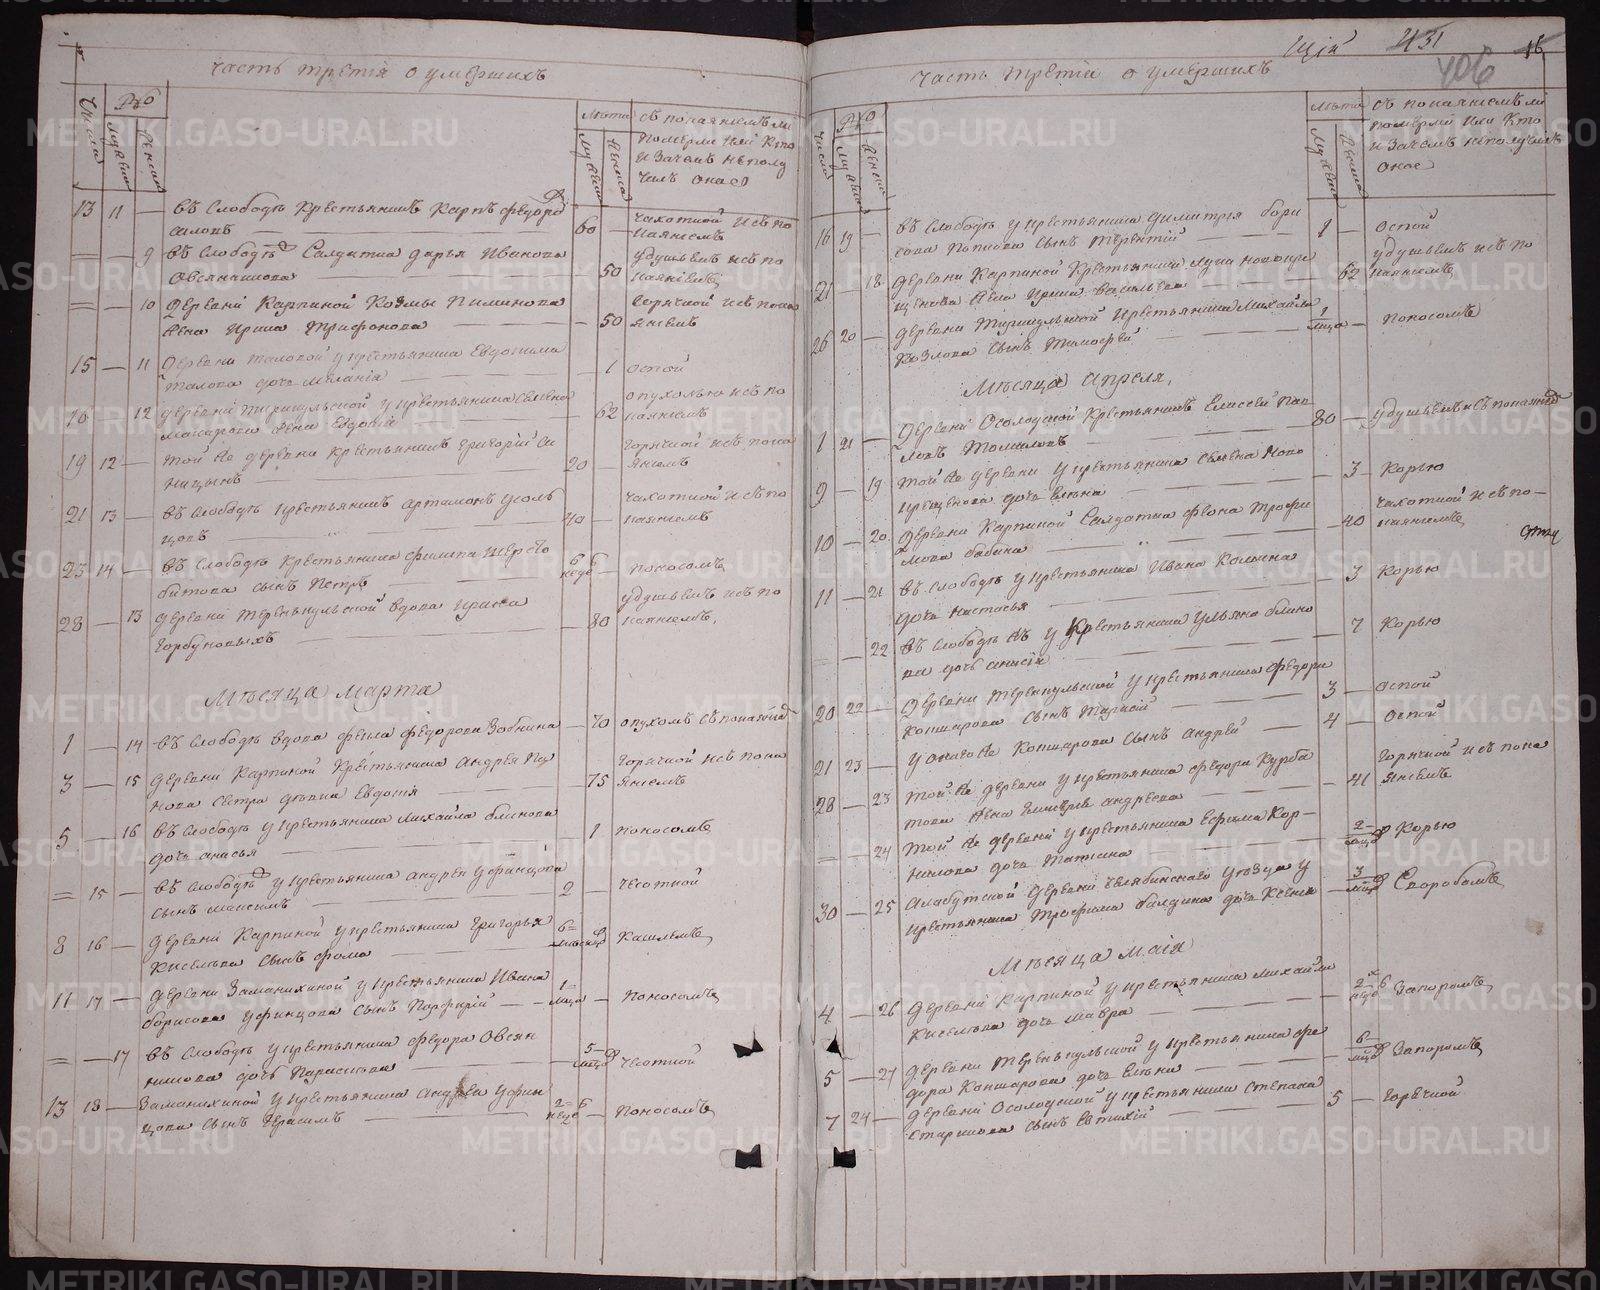 Часть третія о умершихъ
Числа
Мужеска
Женска
Лѣта
Мужеска
Женска
съ покаяніемъ ли
померли или кто
и зачемъ неполу
чилъ онаго
13 11 — Въ слободѣ крестьянинъ Карпъ Федоро
60 — чахоткой и съ по
каяніемъ
= — 9 Въ слободѣ салдатка Дарья Иванова
Овсянникова — 50 удушьемъ и съ по
каяніемъ
= — 10 Деревни Карпиной Козмы Пименова
жена Ирина Трифонова — 50 горячкой и съ пока
яніемъ
15 — 11 Деревни Таловой у крестьянина Евдокима
Талова дочь Меланія — 1 оспой
12 деревни у крестьянина
Макарова жена Евдокія — 62 опухолью и съ по
каяніемъ
19 12 — той же деревни крестьянинъ Григорій Си
ницынъ 20 — горячкой и съ пока
яніемъ
21 13 — Въ слободѣ крестьянинъ Артамонъ Усоль
цовъ 40 — чахоткой и съ по
каяніемъ
23 14 — Въ слободѣ крестьянина Филипа Шерсто
битова сынъ Петръ 6 неде — поносомъ
28 — 13 деревни Теренкульской вдова Ирина
Горбуновыхъ — 80 удушьемъ и съ по
каяніемъ
Мѣсяца марта
1 — 14 Въ слободѣ вдова Фекла Федорова Зобнина — 70 опухолъ съ покаяніе
3 — 15 Деревни Карпиной крестьянина Андрея Па
нова сестра девка Евдокія — 75 горячкой и съ пока
яніемъ
5 — 16 Въ слободѣ у крестьянина Михайла Блинова
дочь — 1 поносомъ
= 15 — Въ слободѣ у крестьянина Андрея Уфинцова
сынъ Максимъ 2 — чесоткой
8 16 — Деревни Карпиной у крестьянина Григорья
Киселева сынъ Фома 6 месяце кашлемъ
11 17 — Деревни Заманихиной у крестьянина Ивана
Борисова Уфинцова сынъ Порфирій 1 — поносомъ
= — 17 Въ слободѣ у крестьянина Федора Овсян
никова дочь Параскева — 5 чесоткой
13 18 — Заманихиной у крестьянина Андрея Уфин
цова сынъ Герасимъ 2 неде — поносомъ
431
406
16
Часть третія о умершихъ
Числа
Мужеска
Женска
Лѣта
Мужеска
Женска
съ покаяніемъ ли
померли или кто
и зачемъ неполучилъ
онаго
16 19 — Въ слободѣ у крестьянина Димитрія Бори
сова Попкова сынъ Терентій 1 — оспой
21 — 18 Деревни Карпиной крестьянина Луки
жена Ирина Васильева — 62 удушьемъ и съ по
каяніемъ
26 20 — Деревни крестьянина Михайла
Козлова сынъ Тимофей 1 — поносомъ
Мѣсяца Апреля
1 21 — Деревни Осолодской крестьянинъ Елисей Пав
ловъ Томиловъ 80 — удушьемъ и съ покаяніе
9 — 19 той же деревни у крестьянина Семена Ново
крещенова дочь Елена — 3 — корью
10 — 20 Деревни Карпиной салдатка Фіона Трофи
мова Бабина — 40 чахоткой и съ по-
каяніемъ
11 — 21 Въ слободѣ у крестьянина Ивана Калинина
дочь Настасья — 3 корью
= — 22 Въ слободѣ же у крестьянина Ульяна Блино
ва дочь Анисія — 7 корью
20 22 — Деревни Теренкульской у крестьянина Федора
Кокшарова сынъ Тарасій 3 — оспой
21 23 — у онаго же Кокшарова сынъ Андрей 4 — оспой
28 — 23 той же деревни у крестьянина Федора Курба
това жена Андреева — 41 горячкой и съ пока
яніемъ
= — 24 той же деревни у крестьянина Ефима Кор-
нилова дочь Татіана — 2 корью
30 — 25 Алабугской деревни Челябинскаго уезда у
крестьянина Трофима Балдина дочь Ксенія — 3 скоробомъ
Мѣсяца Маія
4 — 26 Деревни Карпиной у крестьянина Михайла
Киселева дочь Мавра — 2 неде запоромъ
5 — 27 Деревни Теренкульской у крестьянина Фе
дора Кокшарова дочь Елена — 6 запоромъ
7 24 — Деревни Осолодской у крестьянина Степана
Старикова сынъ Евтихій 5 — горячкой
METRIKI.GASO-URAL.RU